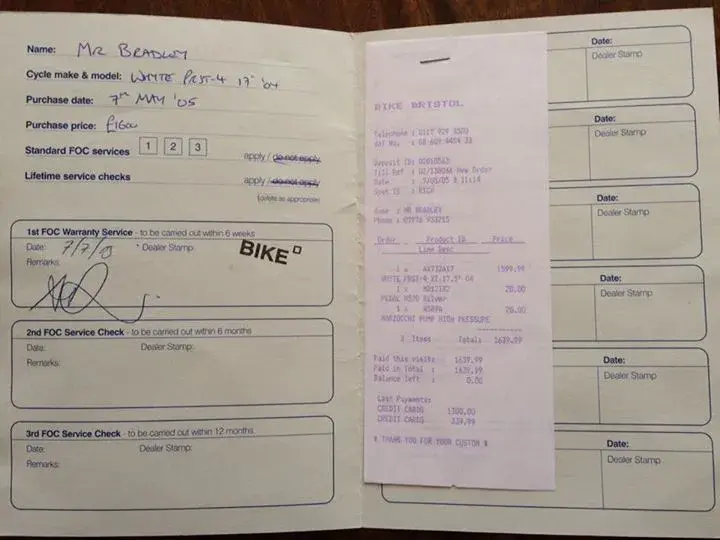 Name: MR BRADLEY
Cycle make & model: WHYTE PRST-4 17" '04
Purchase date: 7TH MAY '05
Purchase price: £1600
Standard FOC services 1 2 3 apply / do not apply
Lifetime service checks apply / do not apply
(delete as appropriate)
1st FOC Warranty Service - to be carried out within 6 weeks
Date: 7/7/ Dealer Stamp: BIKE
Remarks:
2nd FOC Service Check - to be carried out within 6 months
Date: Dealer Stamp:
Remarks:
3rd FOC Service Check - to be carried out within 12 months
Date: Dealer Stamp:
Remarks:
BIKE BRISTOL
Telephone : 0117 929 3500
Vat No. : 08 609 4454 33
Deposit ID: 00010563
Till Ref : New Order
Date : 7/05/05 @ 11:14
Spot ID : RICH
Name : MR BRADLEY
Phone : 07976 933215
Order Product ID Price
Line Desc
1 x AX732A17 1599.99
WHYTE PRST-4 XT-17.5" 04
1 x MD12182 20.00
PEDAL M520 Silver
1 x HSRPA 20.00
MARZOCCHI PUMP HIGH PRESSURE
3 Items Total: 1639.99
Paid this visit: 1639.99
Paid in Total : 1639.99
Balance left : 0.00
Last Payments:
CREDIT CARDS 1300.00
CREDIT CARDS 339.99
* THANK YOU FOR YOUR CUSTOM *
Date:
Dealer Stamp
Date:
Dealer Stamp
Date:
Dealer Stamp
Date:
Dealer Stamp
Date:
Dealer Stamp
Date:
Dealer Stamp